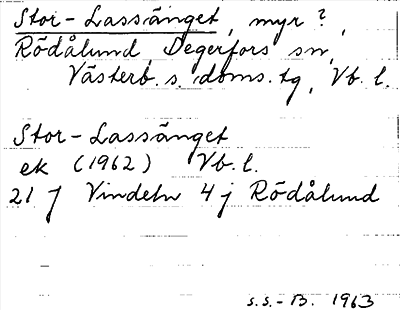 Stor-Lassänget, myr?,
Rödålund, Degerfors sn,
Västerb. s. doms. tg, Vb. l.
Stor-Lassänget
ek (1962) Vb. l.
21 J Vindeln 4 j Rödålund
S.S.-B. 1963